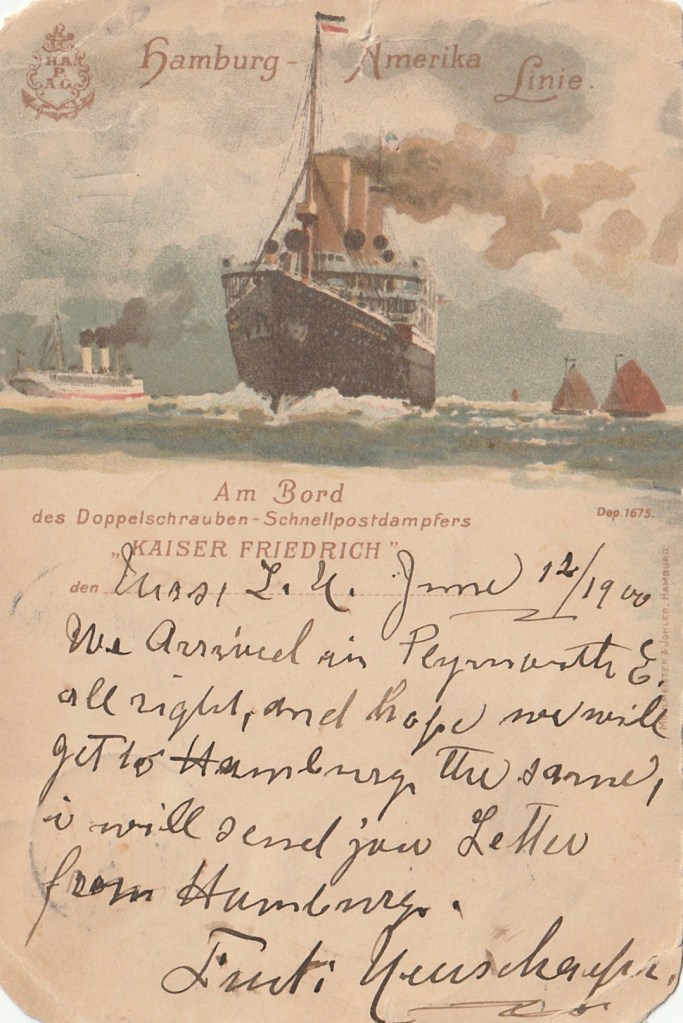 HAPAG
Hamburg - Amerika Linie.
Am Bord
des Doppelschrauben-Schnellpostdampfers
Dep. 1675.
„KAISER FRIEDRICH"
den June 12/1900
We Arrived in Plymouth E.
all right, and hope we will
get to Hamburg the same,
i will send you Letter
from Hamburg.
HAMBURG.